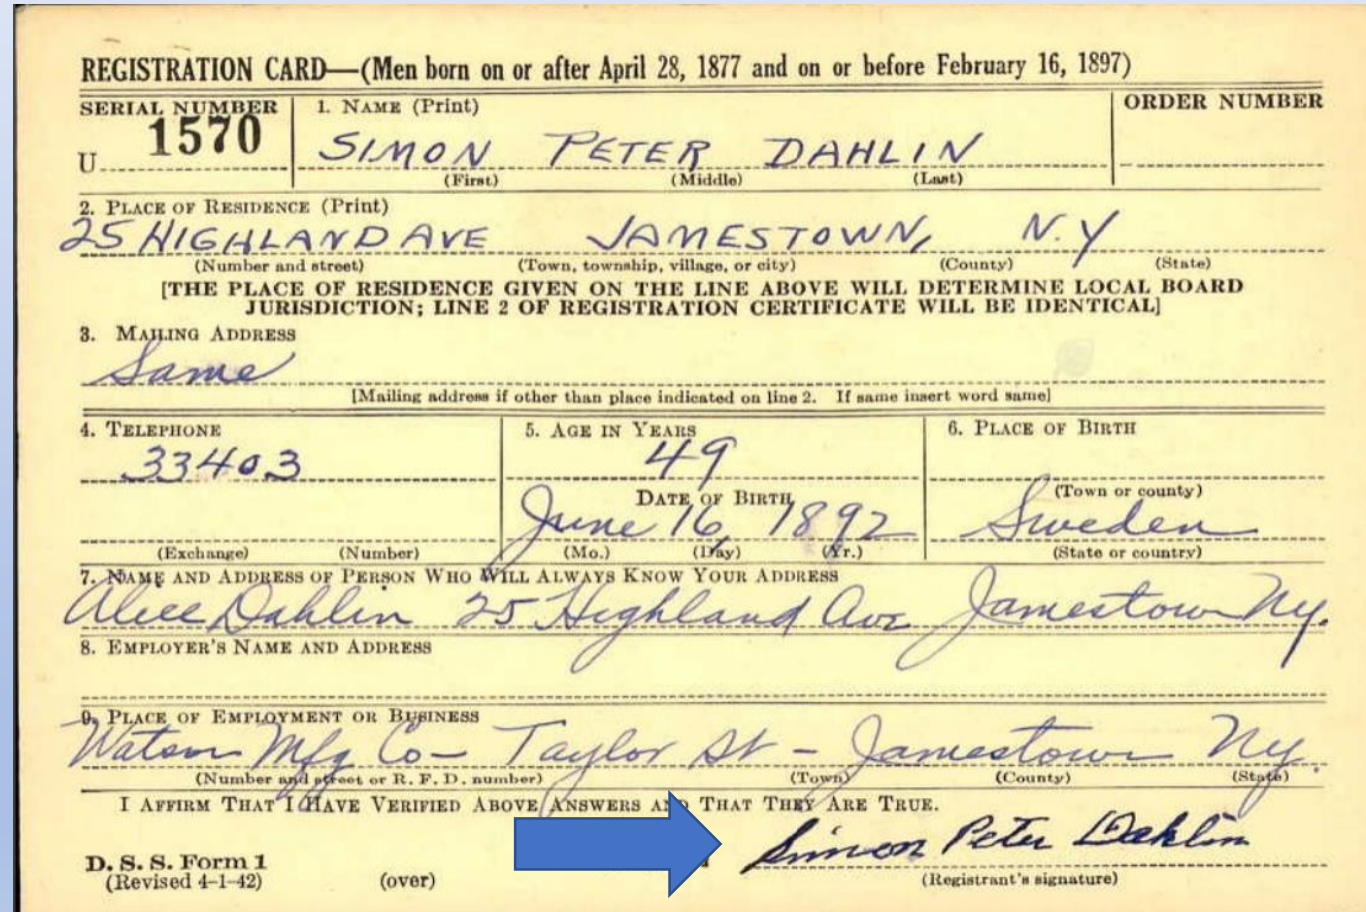 REGISTRATION CARD—(Men born on or after April 28, 1877 and on or before February 16, 1897)
SERIAL NUMBER 1. NAME (Print) ORDER NUMBER
U 1570 SIMON PETER DAHLIN
(First) (Middle) (Last)
2. PLACE OF RESIDENCE (Print)
25 HIGHLAND AVE JAMESTOWN, N.Y
(Number and street) (Town, township, village, or city) (County) (State)
[THE PLACE OF RESIDENCE GIVEN ON THE LINE ABOVE WILL DETERMINE LOCAL BOARD
JURISDICTION; LINE 2 OF REGISTRATION CERTIFICATE WILL BE IDENTICAL]
3. MAILING ADDRESS
Same
[Mailing address if other than place indicated on line 2. If same insert word same]
4. TELEPHONE 5. AGE IN YEARS 6. PLACE OF BIRTH
33403 49
DATE OF BIRTH (Town or county)
June 16, 1892 Sweden
(Exchange) (Number) (Mo.) (Day) (Yr.) (State or country)
7. NAME AND ADDRESS OF PERSON WHO WILL ALWAYS KNOW YOUR ADDRESS
Alice Dahlin 25 Highland Ave Jamestown Ny.
8. EMPLOYER'S NAME AND ADDRESS
9. PLACE OF EMPLOYMENT OR BUSINESS
Watson Mfg Co – Taylor St – Jamestown Ny.
(Number and street or R. F. D. number) (Town) (County) (State)
I AFFIRM THAT I HAVE VERIFIED ABOVE ANSWERS AND THAT THEY ARE TRUE.
Simon Peter Dahlin
D. S. S. Form 1
(Revised 4-1-42) (over) (Registrant's signature)